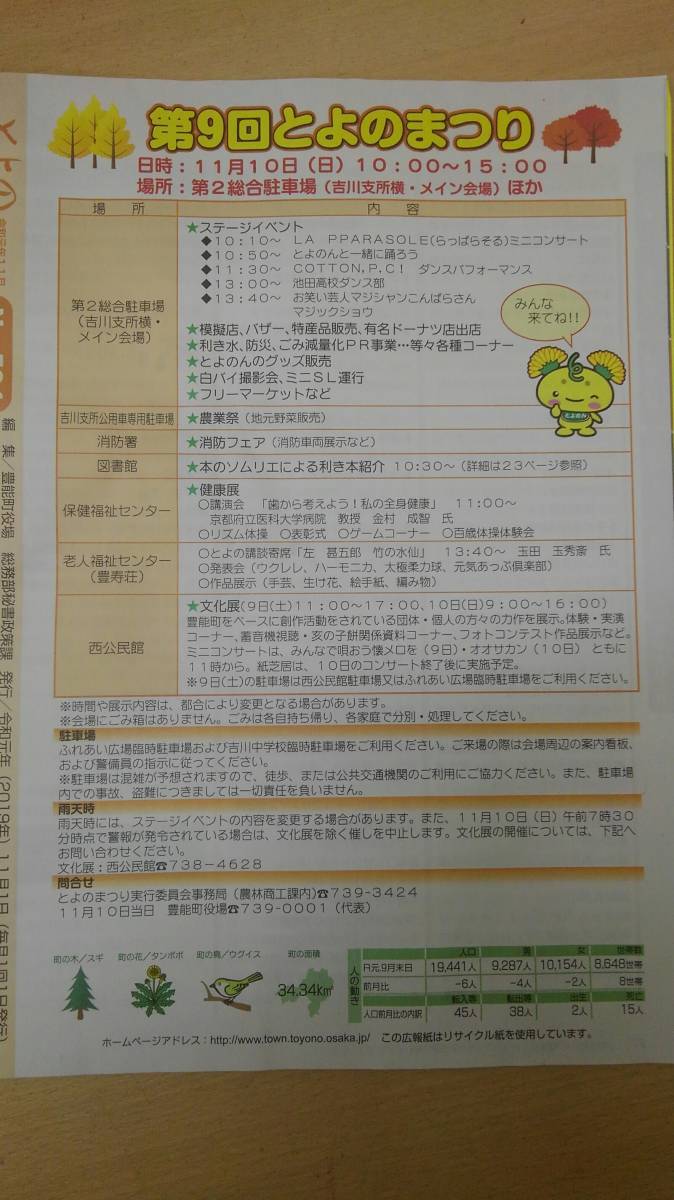 第9回とよのまつり
日時：11月10日（日）10：00～15：00
場所：第2総合駐車場（吉川支所横・メイン会場）ほか
場　所
内　容
第2総合駐車場
（吉川支所横・
メイン会場）
★ステージイベント
◆10：10～　LA　PPARASOLE（らっぱらそる）ミニコンサート
◆10：50～　とよのんと一緒に踊ろう
◆11：30～　COTTON，P，C！　ダンスパフォーマンス
◆13：00～　池田高校ダンス部
◆13：40～　お笑い芸人マジシャンこんぱらさん
マジックショウ
★模擬店、バザー、特産品販売、有名ドーナツ店出店
★利き水、防災、ごみ減量化PR事業…等々各種コーナー
★とよのんのグッズ販売
★白バイ撮影会、ミニSL運行
★フリーマーケットなど
みんな
来てね!!
とよのん
吉川支所公用車専用駐車場
★農業祭（地元野菜販売）
消防署
★消防フェア（消防車両展示など）
図書館
★本のソムリエによる利き本紹介　10：30～（詳細は23ページ参照）
保健福祉センター
★健康展
○講演会　「歯から考えよう！私の全身健康」　11：00～
京都府立医科大学病院　教授　金村　成智　氏
○リズム体操　○表彰式　○ゲームコーナー　○百歳体操体験会
老人福祉センター
（豊寿荘）
○とよの講談寄席「左　甚五郎　竹の水仙」　13：40～　玉田　玉秀斎　氏
○発表会（ウクレレ、ハーモニカ、太極柔力球、元気あっぷ倶楽部）
○作品展示（手芸、生け花、絵手紙、編み物）
西公民館
★文化展（9日（土）11：00～17：00、10日（日）9：00～16：00）
豊能町をベースに創作活動をされている団体・個人の方々の力作を展示。体験・実演
コーナー、蓄音機視聴・亥の子餅関係資料コーナー、フォトコンテスト作品展示など。
ミニコンサートは、みんなで唄おう懐メロを（9日）・オオサカン（10日）　ともに
11時から。紙芝居は、10日のコンサート終了後に実施予定。
※9日（土）の駐車場は西公民館駐車場又はふれあい広場臨時駐車場をご利用ください。
※時間や展示内容は、都合により変更となる場合があります。
※会場にごみ箱はありません。ごみは各自持ち帰り、各家庭で分別・処理してください。
駐車場
ふれあい広場臨時駐車場および吉川中学校臨時駐車場をご利用ください。ご来場の際は会場周辺の案内看板、
および警備員の指示に従ってください。
※駐車場は混雑が予想されますので、徒歩、または公共交通機関のご利用にご協力ください。また、駐車場
内での事故、盗難につきましては一切責任を負いません。
雨天時
雨天時には、ステージイベントの内容を変更する場合があります。また、11月10日（日）午前7時30
分時点で警報が発令されている場合は、文化展を除く催しを中止します。文化展の開催については、下記へ
お問い合わせください。
文化展：西公民館☎738－4628
問合せ
とよのまつり実行委員会事務局（農林商工課内）☎739－3424
11月10日当日　豊能町役場☎739－0001（代表）
町の木／スギ
町の花／タンポポ
町の鳥／ウグイス
町の面積
34.34km²
人の動き
人口　男　女　世帯数
R元.9月末日　19,441人　9,287人　10,154人　8,648世帯
前月比　－6人　－4人　－2人　8世帯
転入等　転出等　出生　死亡
人口前月比の内訳　45人　38人　2人　15人
ホームページアドレス：http://www.town.toyono.osaka.jp/　この広報紙はリサイクル紙を使用しています。
とよの
令和元年11月
編　集／豊能町役場　総務部秘書政策課　発行／令和元年（2019年）11月1日（毎月1回1日発行）